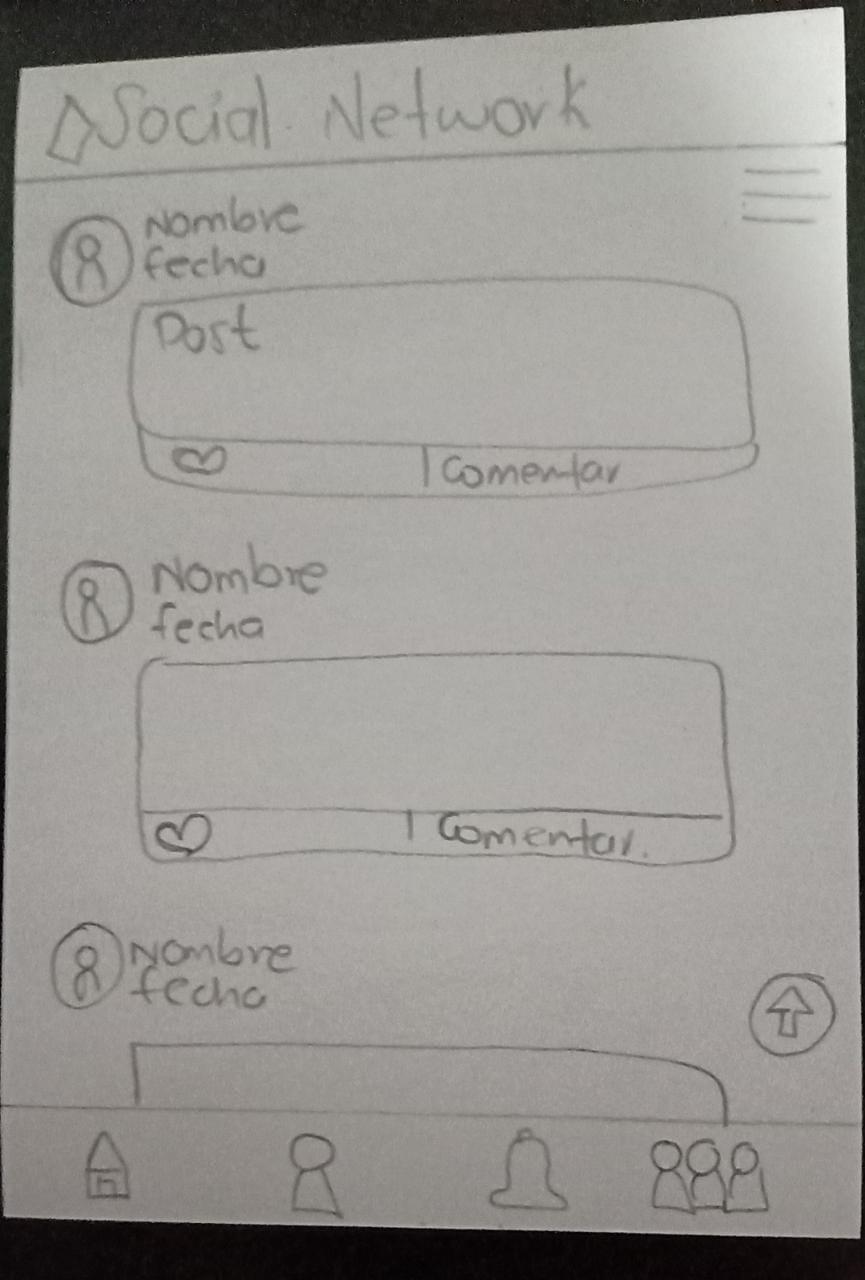 Social Network
Nombre
fecha
Post
Comentar
Nombre
fecha
Comentar.
Nombre
fecha